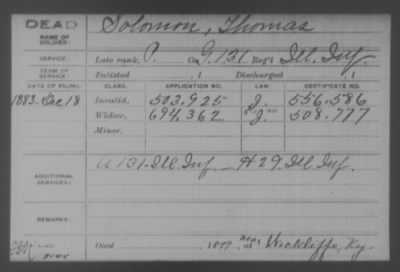 DEAD
NAME OF SOLDIER:
Solomon, Thomas
SERVICE:
Late rank, P. Co G. 131 Reg't Ill. Inf.
TERM OF SERVICE:
Enlisted , 1 Discharged , 1
DATE OF FILING. CLASS. APPLICATION NO. LAW. CERTIFICATE NO.
1883. Dec 18 Invalid, 503,925 J. 556.586
Widow, 694,362 J. 508.777
Minor,
ADDITIONAL SERVICES:
A 131 Ill. Inf H 29 Ill. Inf.
REMARKS:
Died 1877 near Wickliffe, Ky.